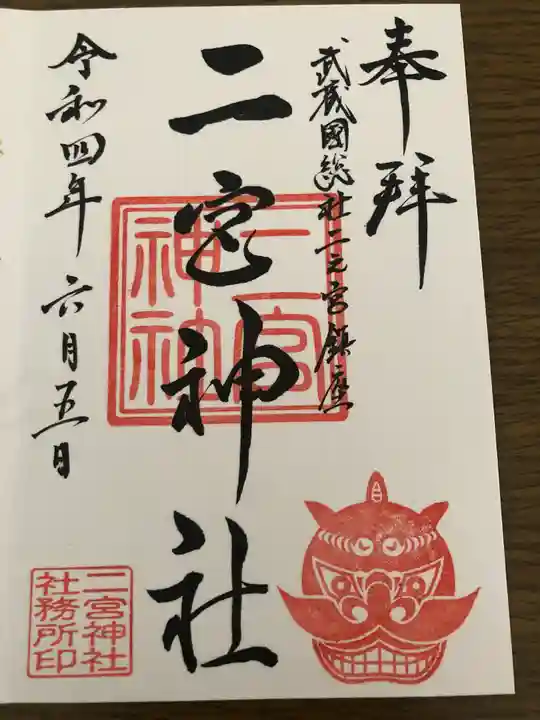 奉拝
武蔵國総社二之宮鎮座
二宮神社
二宮神社
令和四年 六月五日
二宮神社
社務所印